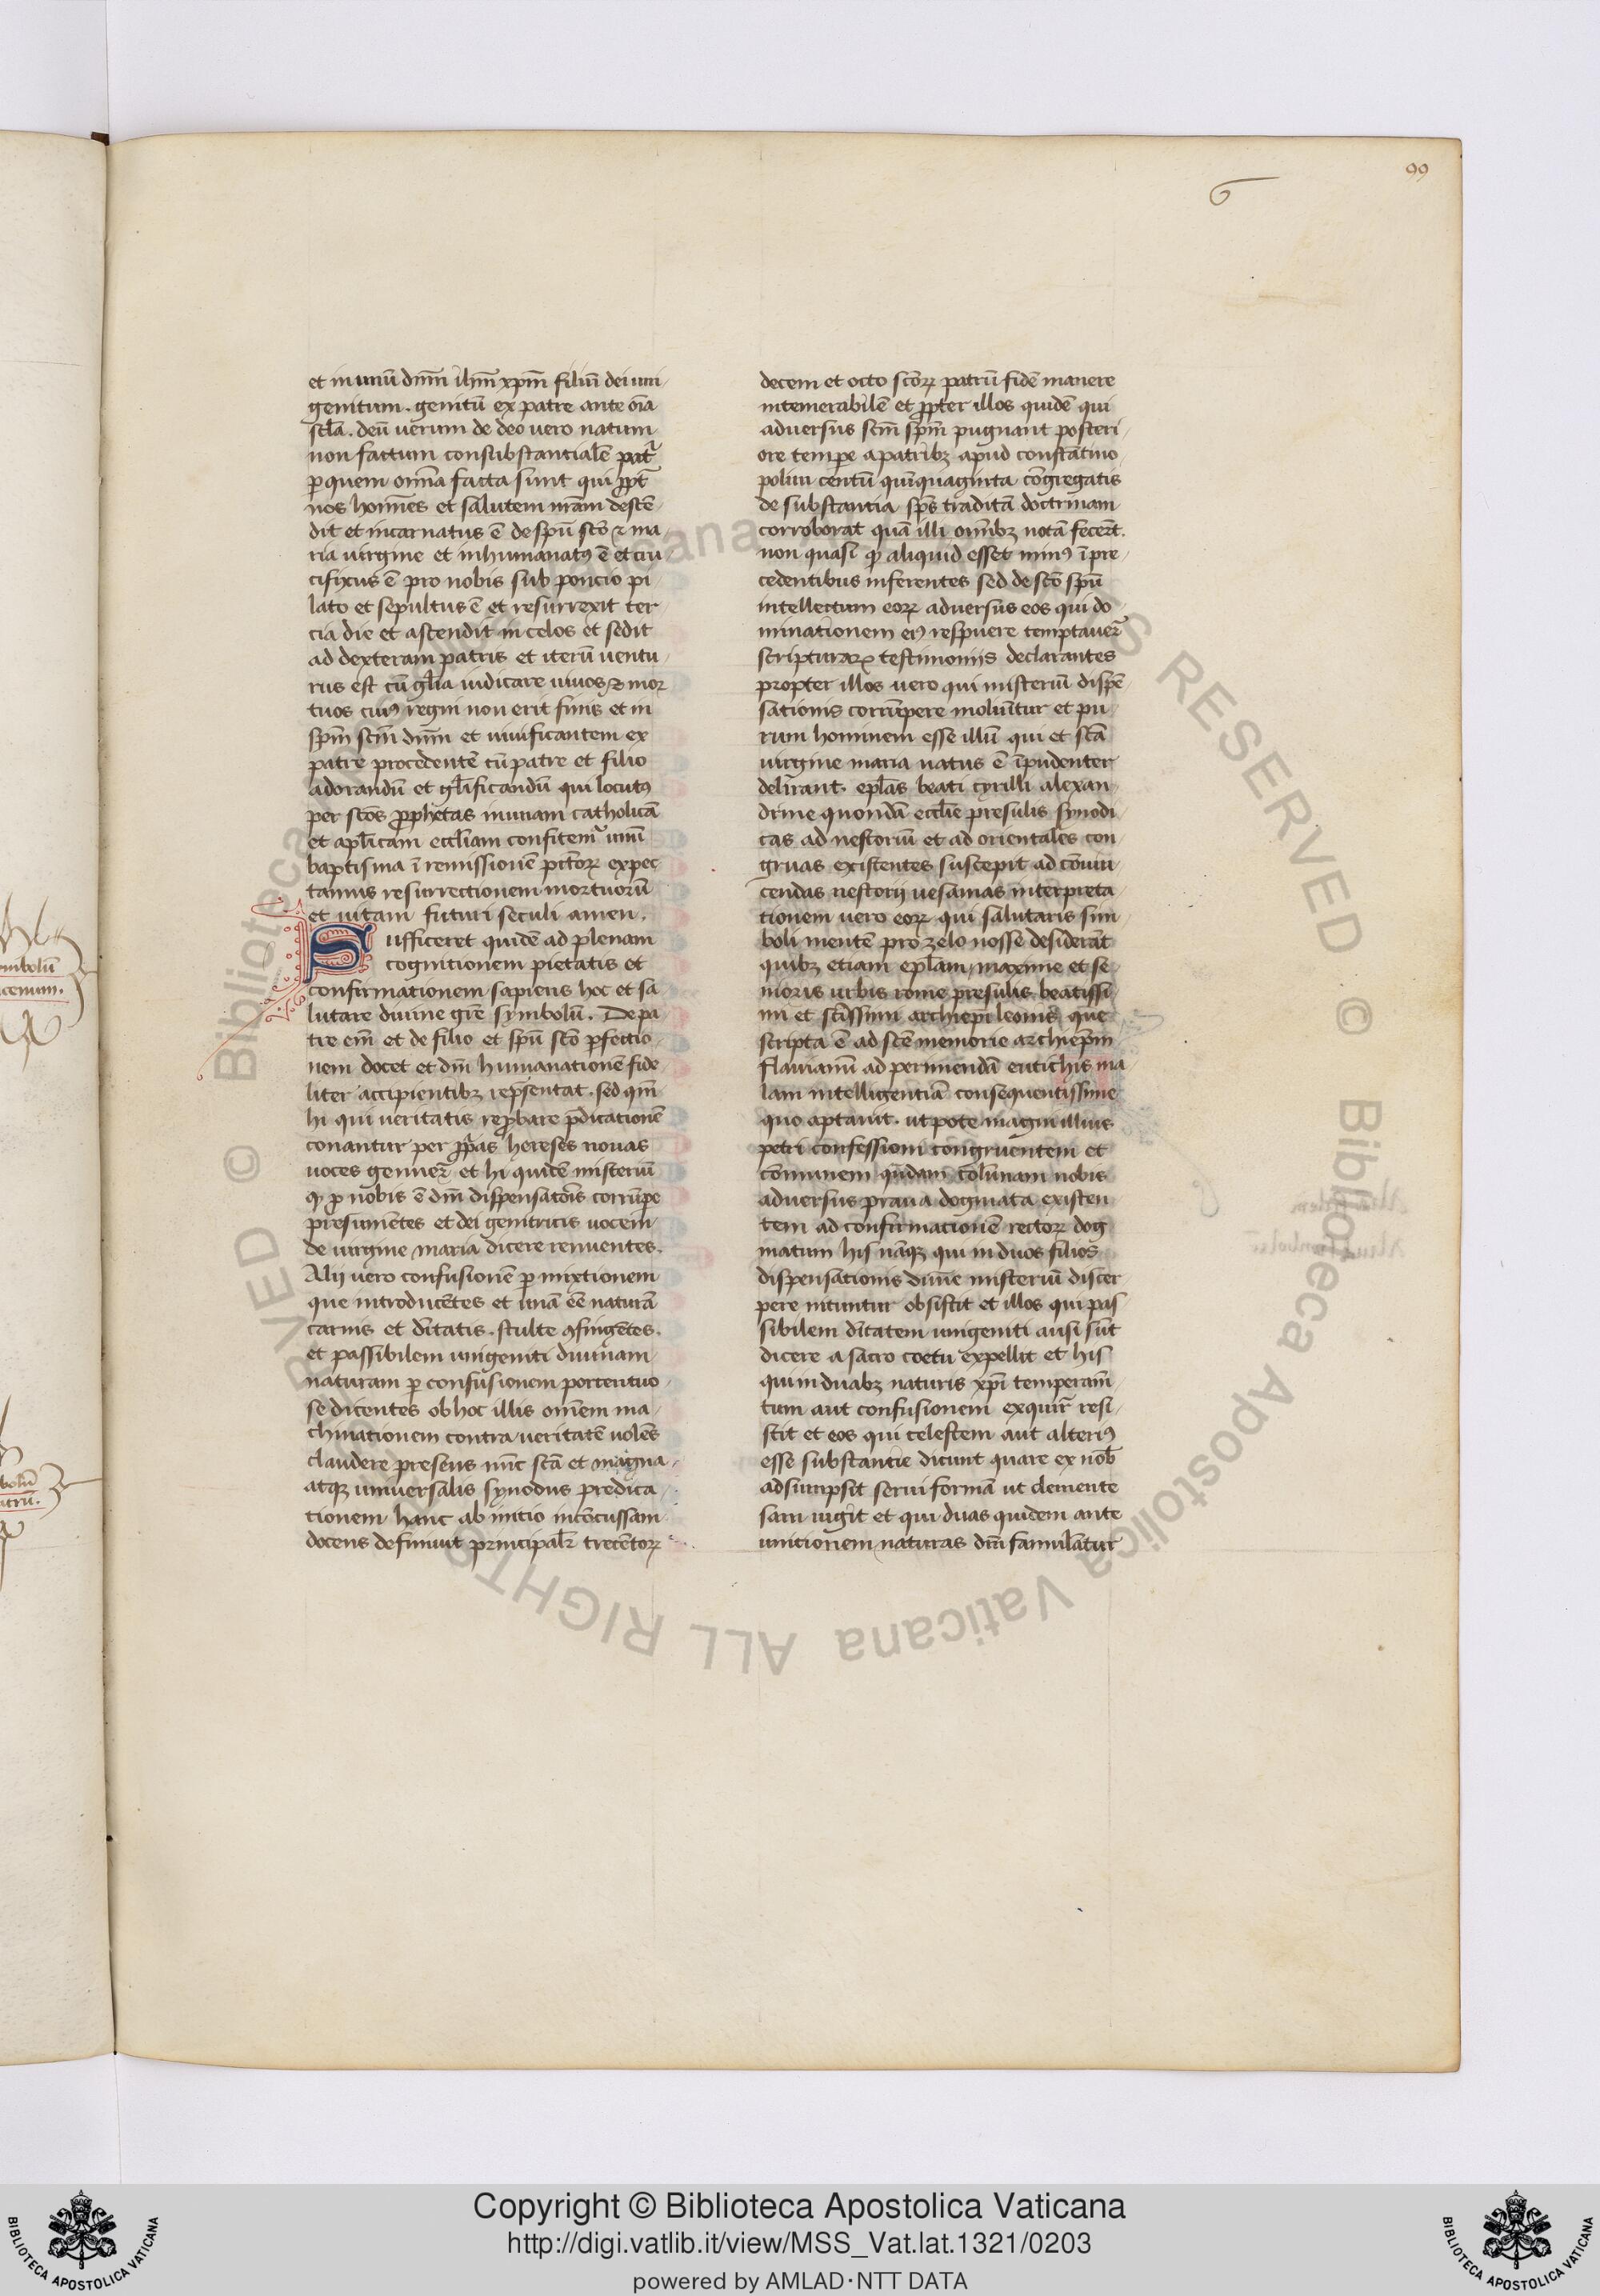 99
6
et in unū dnm̄ ihm̄ xpm̄ filiū dei uni
genitum. genitū ex patre ante oīa
scl̄a. deū uerum de deo uero natum
non factum consubstantialē patr̄
ꝑ quem omīa facta sunt qui ꝓpt̄
nos homīes et salutem nr̄am descē
dit et incarnatus ē de spū scō ⁊ ma
ria uirgine et inhumanatꝰ ē et cru
cifixus ē pro nobis sub poncio pi
lato et sepultus ē et resurrexit ter
cia die et ascendit in celos et sedit
ad dexteram patris et iterū uentu
rus est cū gl̄ia iudicare uiuos ⁊ mor
tuos cuiꝰ regni non erit finis et in
spm̄ scm̄ dnm̄ et uiuificantem ex
patre procedentē cū patre et filio
adorandū et gl̄ificandū qui locutꝰ
per scōs ꝓphetas in unam catholicā
et apl̄icam eccl̄iam confitemᷣ unū
baptisma ī remissionē pctōꝝ expec
tamus resurrectionem mortuorū
et uitam futuri seculi amen.
Sufficeret quidē ad plenam
cognitionem pietatis et
confirmationem sapiens hoc et sa
lutare diuine grē symbolū. De pa
tre em̄ et de filio et spū scō ꝑfectio
nem docet et dnī humanationē fide
liter accipientibꝫ repn̄sentat. sed qm̄
hi qui ueritatis reꝓbare p̄dicationē
conantur per ꝓp̄as hereses nouas
uoces genuer̄ et hi quidē misteriū
qꝫ ꝓ nobis ē dnī dispensatōis corrūpe
presumētes et dei genitricis uocem
de uirgine maria dicere renuentes.
Alij uero confusionē ꝑ mixtionem
que introducētes et unā eē naturā
carnis et dītatis. stulte ꝯfingētes.
et passibilem unigeniti diuinam
naturam ꝑ confusionem portentuo
se dicentes ob hoc illis omēm ma
chinationem contra ueritatē uolēs
claudere presens nūc scā et magna
atqꝫ uniuersalis synodus predica
tionem hanc ab initio incōcussam
docens definiuit principalr̄ trecētoꝝ
decem et octo scōꝝ patrū fidē manere
intemerabilē et ꝓpter illos quidē qui
aduersus scm̄ spm̄ pugnant posteri
ore tempe a patribꝫ apud constātino
polim centū quīquaginta cōgregatis
de substantia sps̄ traditā doctrinam
corroborat quā illi omībꝫ notā fecēt.
non quasi qꝫ aliquid esset minꝰ ī pre
cedentibus inferentes sed de scō spū
intellectum eoꝝ aduersus eos qui do
minationem eiꝰ respuere temptauer̄
scripturaꝝ testimonijs declarantes
propter illos uero qui misteriū dispē
sationis corrūpere moliūtur et pu
rum hominem esse illū qui et scā
uirgine maria natus ē īpudenter
delirant. epl̄as beati cyrilli alexan
drine quondā eccl̄ie presulis synodi
cas ad nestoriū et ad orientales con
gruas existentes suscepit ad cōuin
cendas nestorij uesanias interpreta
tionem uero eoꝝ qui salutaris sim
boli mentē pro zelo nosse desiderāt
quibꝫ etiam epl̄am maxime et se
nioris urbis rome presulis beatissi
mi et scīssimi archiepī leonis que
scripta ē ad scē memorie archiepm̄
flauianū ad perimendā eutichis ma
lam intelligentiā consequentissime
quo aptauit. utpote magni illius
petri confessioni congruentem et
cōmunem quādam colūnam nobis
aduersus praua dogmata existen
tem ad confirmacionē rectoꝝ dog
matum his nāqꝫ qui in duos filios
dispensationis diuīe misteriū discer
pere nituntur obsistit et illos qui pas
sibilem dītatem unigeniti ausi sūt
dicere a sacro coetu expellit et his
qui in duabꝫ naturis xpī temperam̄
tum aut confusionem exquir̄ resi
stit et eos qui celestem aut alteriꝰ
esse substantie dicunt quare ex nob̄
adsumpsit serui formā ut clemente
sam iugit et qui duas quidem ante
unitionem naturas dnī famulātur
Copyright © Biblioteca Apostolica Vaticana
http://digi.vatlib.it/view/MSS_Vat.lat.1321/0203
powered by AMLAD·NTT DATA